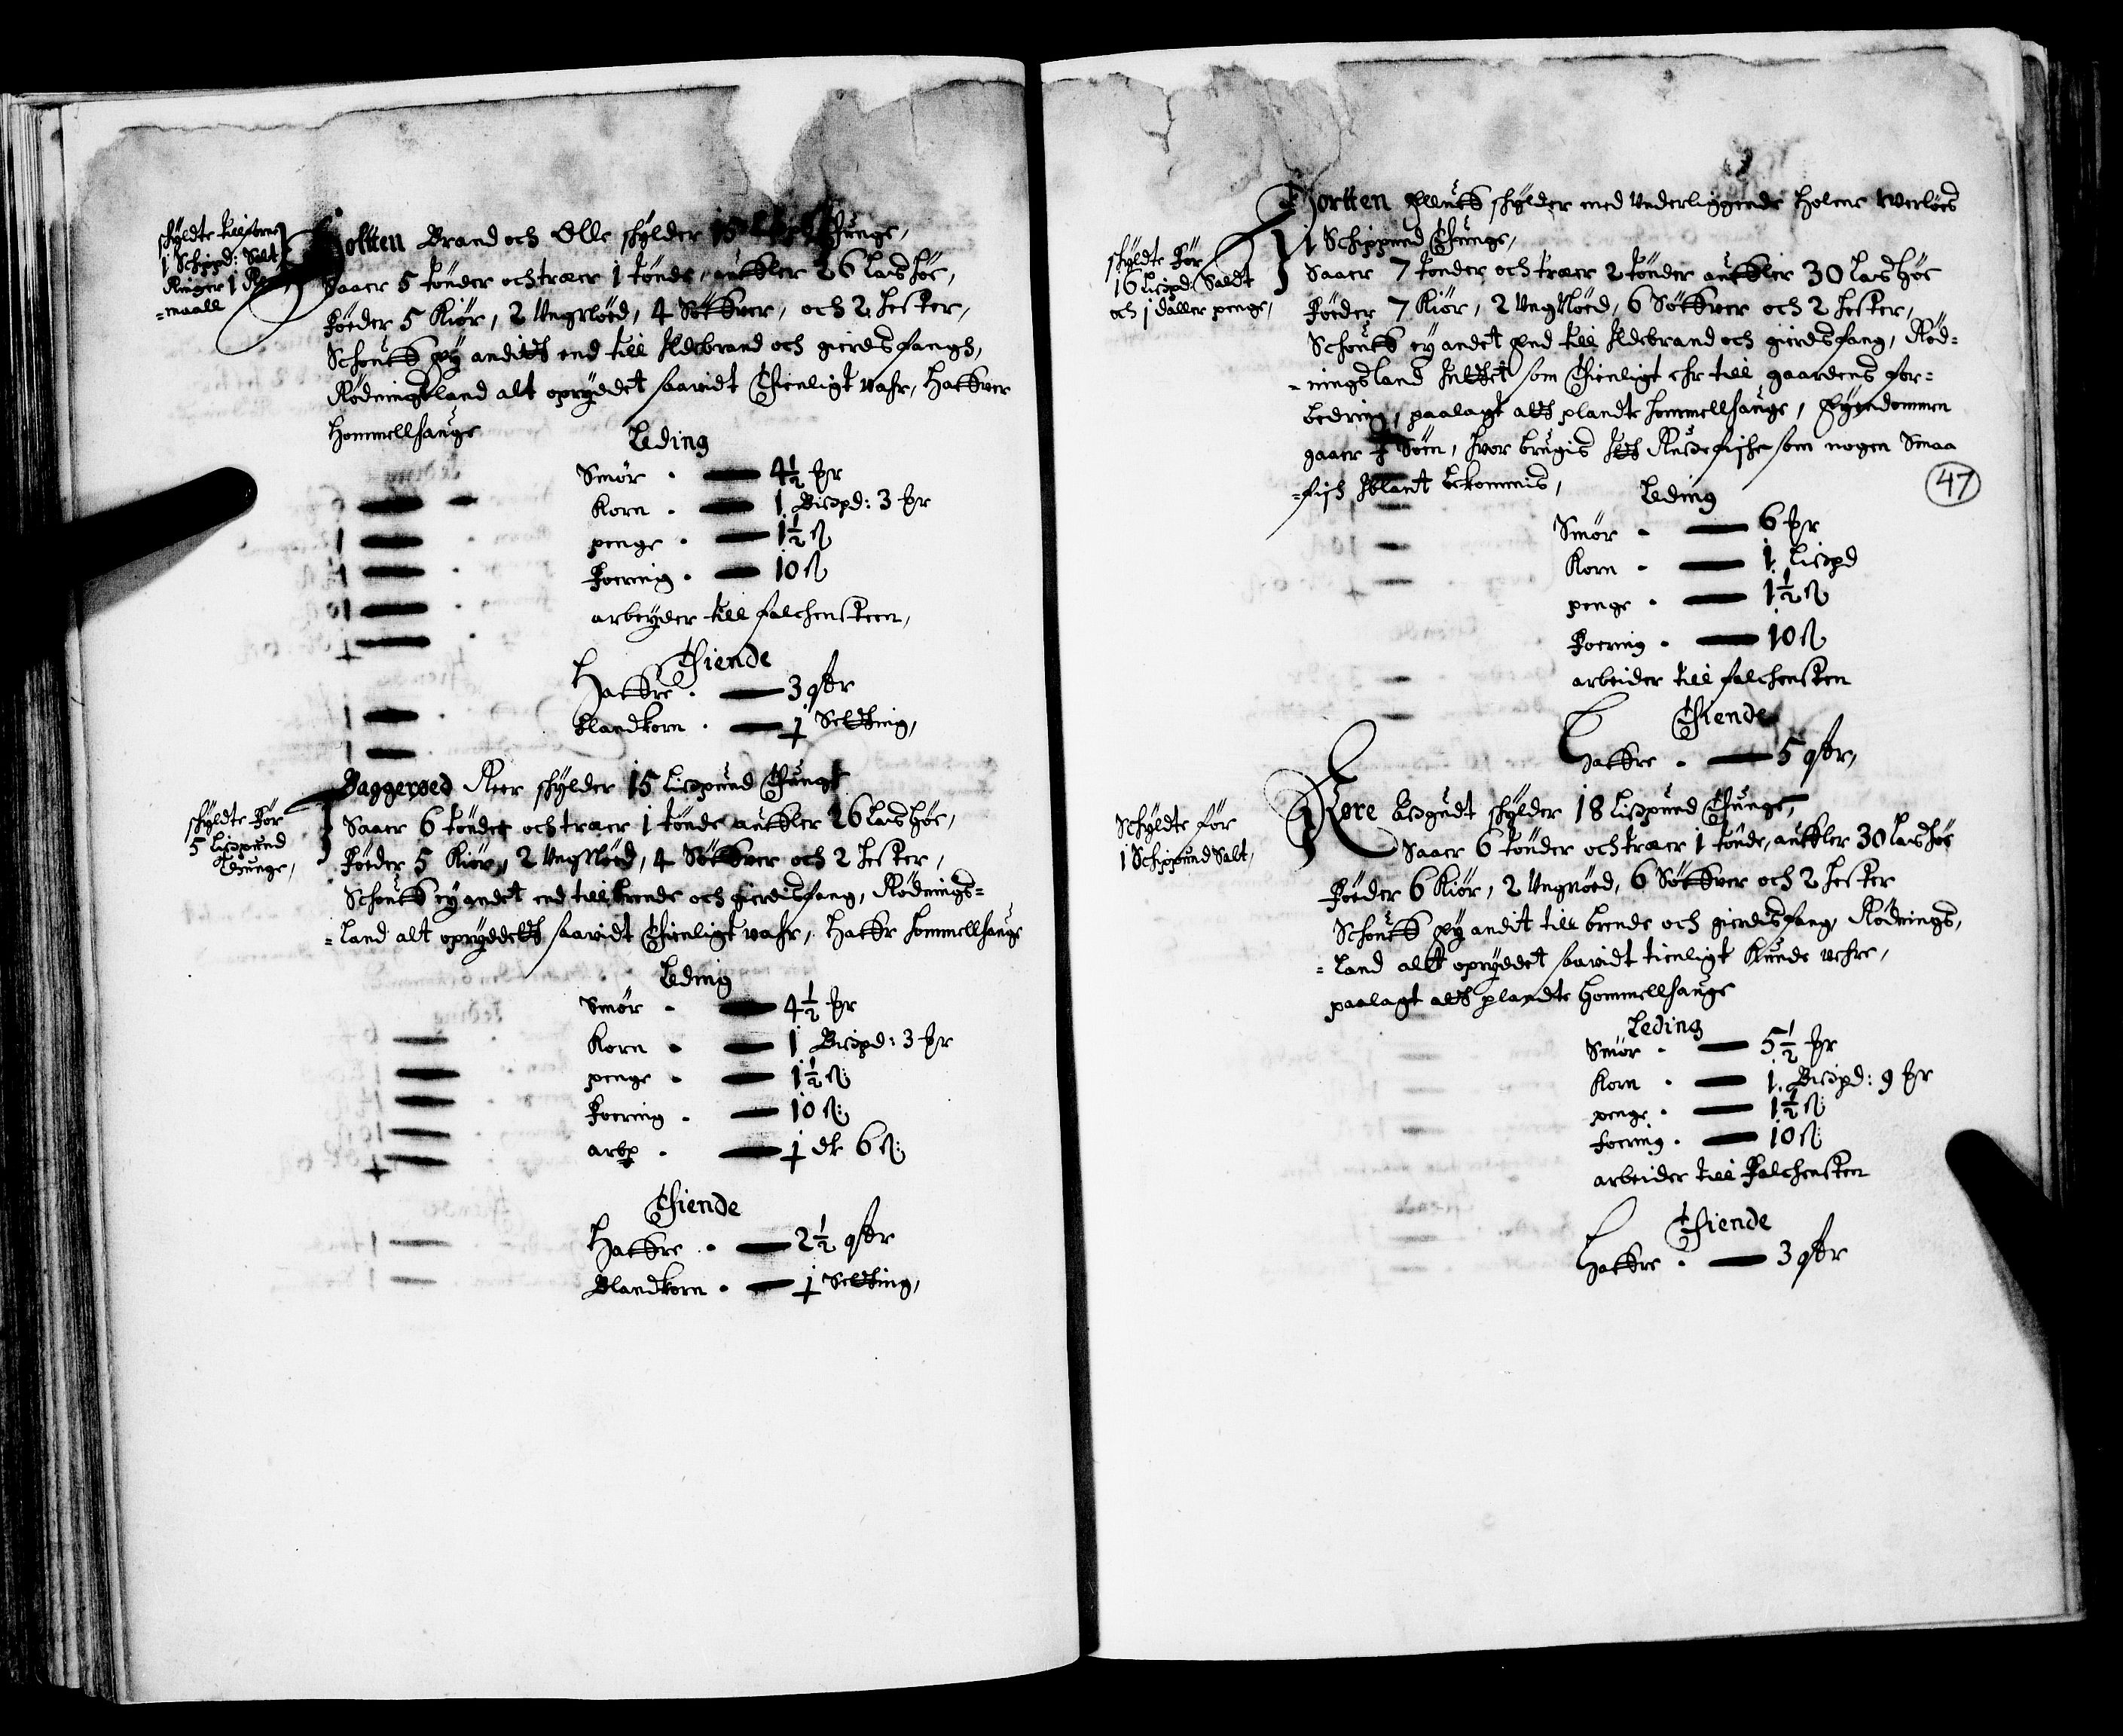 skyldte tilforne
1 Schippd: Salt
Ringer 1 
=maall
Holtten Brand och Olle skylder 15 Thunge,
Saaer 5 tönder och træer 1 tönde, auffler 26 Las Höe,
Föeder 5 Kiör, 2 Ungnöed, 4 Söffuer, och 2 Hester,
Schouff ey andet end till Ildebrand och gierdsfangh,
Rödningsland alt opryddet saauidt thienligt vahr, Haffuer
Hommellhauge
Leding
Smör . — 4½ þr
Korn . — 1 Bispd: 3 þr
penge . — 1½ ß
Foering . — 10 ß
arbeyder till falchensteen,
Thiende
Haffre . — 3 qtr
Blandkorn . — 1 Setting,
skyldte För
5 Lispund
Thunge,
Baggerøed Peer skylder 15 Lispund Thunge
Saaer 6 tönder och træer 1 tönde auffler 26 Las Höe,
Föeder 5 Kiör, 2 Ungnöed, 4 Söffuer och 2 Hester,
Schouff ey andet end till brende och gierdsfang, Rödnings=
=land alt opryddet saauidt thienligt vahr, Haffr Hommellhauge
Leding
Smör . — 4½ þr
Korn . — 1 Bispd: 3 þr
penge . — 1½ ß:
Foering . — 10 ß:
arbp . — 1 dlr 6 ß:
Thiende
Haffre . — 2½ qtr
Blandkorn . — 1 Setting,
skyldte För
16 Lispd: Saldt
och 1 daller penge,
Hortten skylder med Underliggende Holme
1 Schippund Thunge,
Saaer 7 tönder och træer 2 tönder auffler 30 Las Höe
Föeder 7 Kiör, 2 Ungnöed, 6 Söffuer och 2 Hester,
Schouff ey andet End till Ildebrand och gierdsfang, Röd=
=ningsland Inttet som thienligt ehr till gaardens for=
bedring, paalagt att plandte Hommellhauge, Eyendommen
gaaer Söen, huor brugis som nogen Smaa
=fisch Iblant bekommis,
47
Leding
Smör . — 6 þr
Korn . — 1 Lispd
penge . — 1½ ß
Foering . — 10 ß
arbeider till falchensten
Thiende
Haffre . — 5 qtr,
Schyldte för
1 Schippund Salt,
Røre skylder 18 Lispund Thunge,
Saaer 6 tönder och træer 1 tönde, auffler 30 Las Höe
Föeder 6 Kiör, 2 Ungnöed, 6 Söffuer och 2 Hester
Schouff Ey andit till brende och gierdsfang, Rödnings,
=land allt opryddet saauidt tienligt Kunde vehre,
paalagt att plandte Hommellhauge
Leding
Smör . — 5½ þr
Korn . — 1 Bispd: 9 þr
penge . — 1½ ß:
foering . — 10 ß:
arbeider till Falchensten
Thiende
Haffre . — 3 qtr